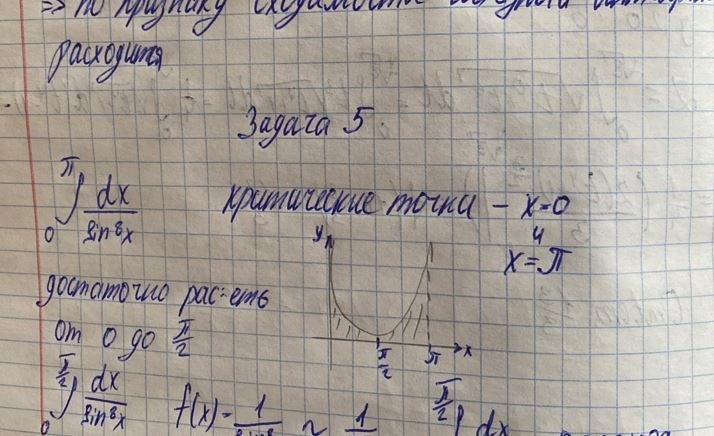 => по признаку сходимости
расходится
Задача 5
π
∫ dx / sin⁸x критические точки – x=0
0
и
x = π
достаточно рас-еть
от 0 до π/2
y
π/2 π x
π/2
∫ dx / sin⁸x f(x) = 1 / sin⁸ ~ 1 π/2 ∫ dx
0